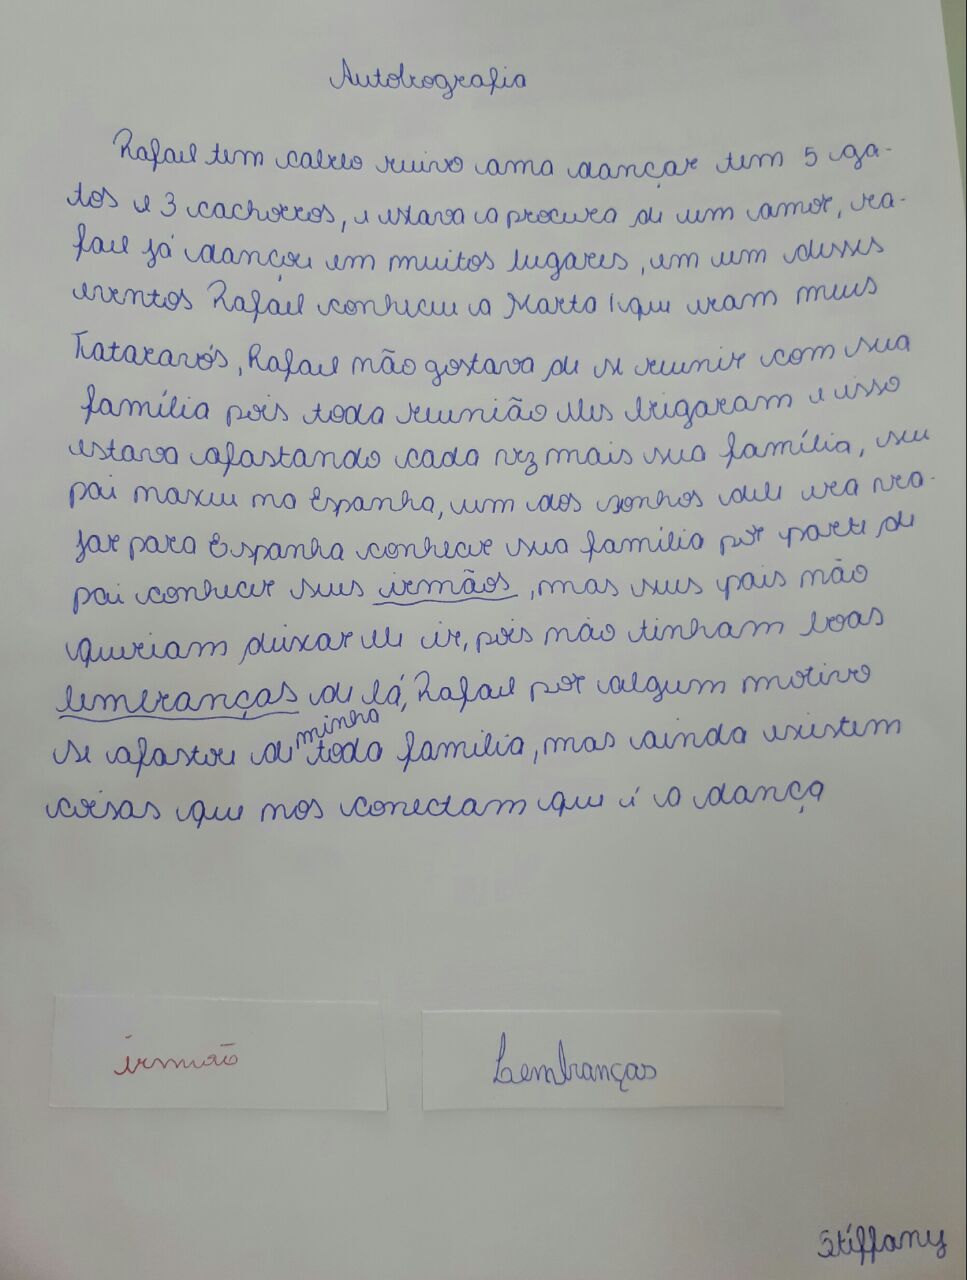 Autobiografia
Rafael tem cabelo ruivo ama dançar tem 5 ga-
tos e 3 cachorros, e estava a procura de um amor, ra-
fael já dançou em muitos lugares, em um desses
eventos Rafael conheceu a Marta que eram meus
Tataravós, Rafael não gostava de se reunir com sua
família pois toda reunião eles brigavam e isso
estava afastando cada vez mais sua família, seu
pai naxeu na Espanha, um dos sonhos dele era via-
jar para Espanha conhecer sua família por parte de
pai conhecer seus irmãos, mas seus pais não
queriam deixar ele ir, pois não tinham boas
lembranças de lá, Rafael por algum motivo
se afastou de minha toda familia, mas ainda existem
coisas que nos conectam que é a dança
irmão Lembranças
Stiffany